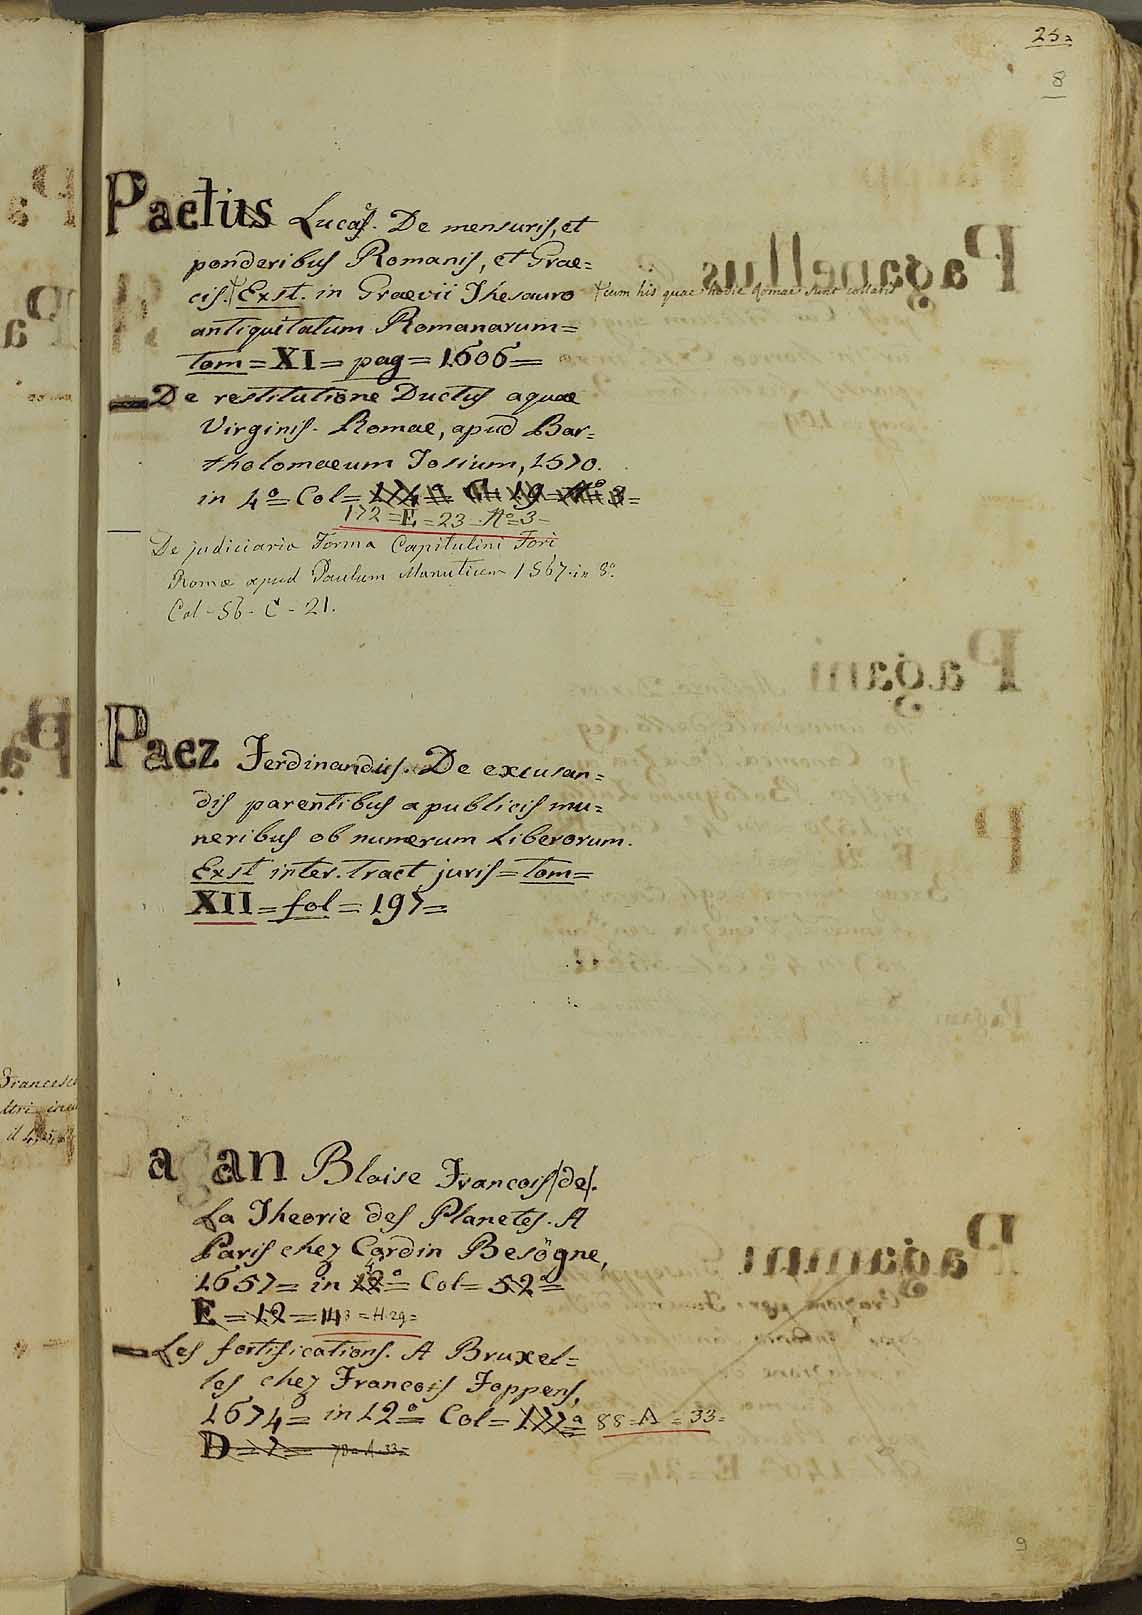 25
8
Paetus Lucas. De mensuris, et
ponderibus Romanis, et Grae=
cis. Exst. in Graevii Thesauro †cum his quae hodie Romae sunt collatis
antiquitatum Romanarum=
tom=XI=pag=1606=
De restitutione Ductus aquae
Virginis. Romae, apud Bar=
tholomaeum Tosium, 1570.
in 4º= Col=
172=E=23=Aº=3=
De judiciaria Forma Capitulini Fori
Romæ apud Paulum Manutium 1567. in 8º.
Col-56-C-21.
Paez Ferdinandus. De excusan=
dis parentibus a publicis mu=
neribus ob numerum Liberorum.
Exst inter Tract juris=tom=
XII=fol=197=
agan Blaise Francois/de/.
La Theorie des Planetes. A
Paris chez Cardin Besögne,
1657= in 12º= Col= 52ª=
E=12=143=H.29=
Les fortifications. A Bruxel=
les chez Francois Foppens,
1674= in 12º= Col=177ª= 88=A=33=
D=7=
Francesc
9